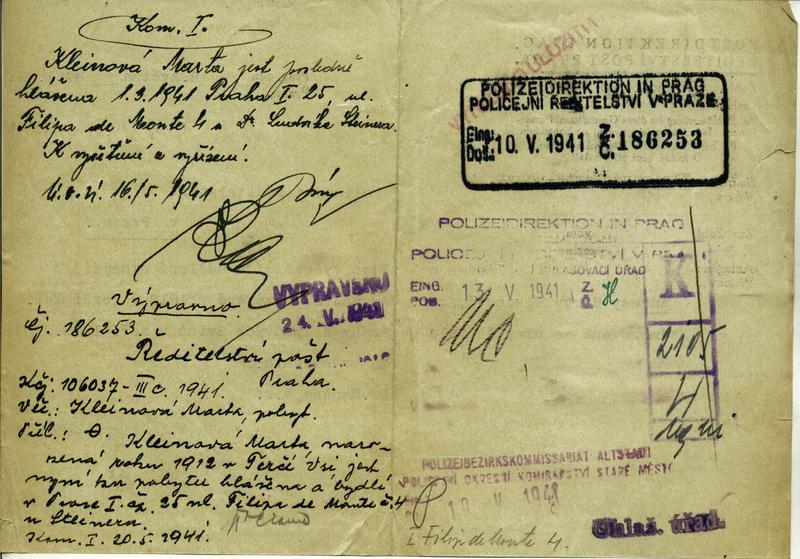 Kom. I.
Kleinová Marta jest posledně
hlášena 1.3.1941 Praha I. 25, ul.
Filipa de Monte 4 u Dr. Ludvíka Steinera.
K vyřízení.
16./5. 1941
Výpravna.
VYPRAVENO
24. V. 1941
Čj. 186253.
Ředitelství pošt
Praha.
Kčj: 106037-III c. 1941.
Věc: Kleinová Marta, pobyt.
Příl.: 0.
Kleinová Marta naro-
zená roku 1912 v Terčí Vsi jest
nyní ku pobytu hlášena a bydlí
v Praze I. čp. 25 ul. Filipa de Monte č. 4
u Steinera.
Kom. I. 20.5.1941.
POLIZEIDIREKTION IN PRAG
POLICEJNÍ ŘEDITELSTVÍ V PRAZE
Eing.
Doš.
10. V. 1941
Z.
Č.
186253
POLIZEIDIREKTION IN PRAG
POLICEJNÍ ŘEDITELSTVÍ V PRAZE
OHLAŠOVACÍ ÚŘAD
EING.
POD.
13. V. 1941
Z.
K
2105
4
POLIZEIBEZIRKSKOMMISSARIAT ALTSTADT
POLICEJNÍ OKRESNÍ KOMISAŘSTVÍ STARÉ MĚSTO
19. V. 1941
Filip de Monte 4.
Ohlaš. úřad.